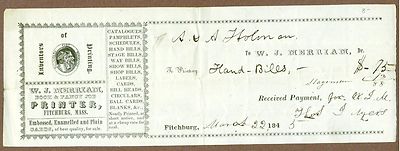 Luxuries
of
Printing.
W. J. MERRIAM,
BOOK & FANCY JOB
PRINTER,
FITCHBURG, MASS.
Embossed, Enamelled and Plain
CARDS, of best quality, for sale.
CATALOGUES
PAMPHLETS,
SCHEDULES,
HAND BILLS,
STAGE BILLS,
WAY BILLS,
SHOW BILLS,
SHOP BILLS,
LABELS,
CARDS,
BILL HEADS,
CIRCULARS,
BALL CARDS,
BLANKS, &c.
Neatly Printed, at
short notice, and
A & A Holman
To W. J. MERRIAM, Dr.
To Printing Hand-Bills, $-75
Received Payment, for W. J. M.
Fitchburg, March 22 184 5